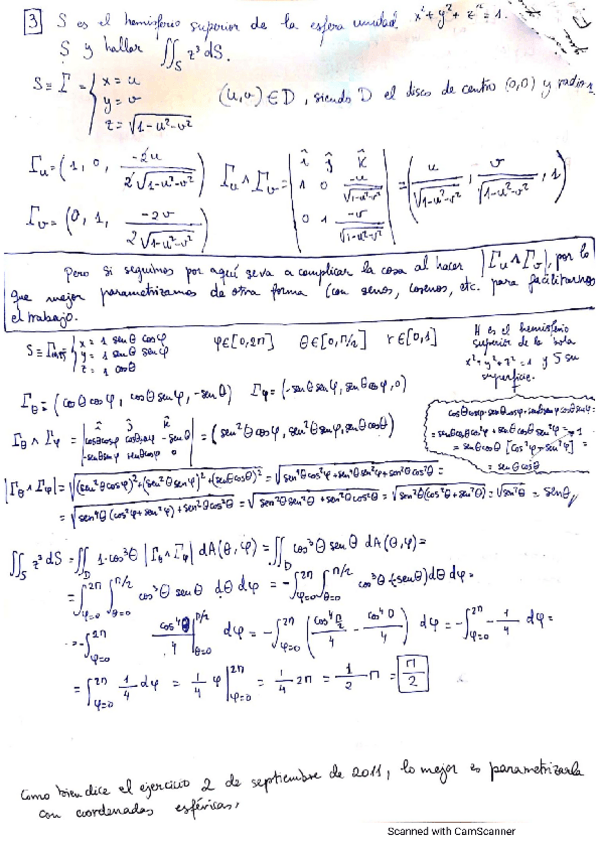 3 S es el hemisferio superior de la esfera unidad x²+y²+z²=1.
S y hallar ∬_S z³dS.
S≡Γ={ x=u
y=v
z=√(1-u²-v²)
(u,v)∈D, siendo D el disco de centro (0,0) y radio 1
Γu=(1, 0, -2u/(2√(1-u²-v²))) Γu∧Γv=| î ĵ k̂ ; 1 0 -u/√(1-u²-v²) ; 0 1 -v/√(1-u²-v²) |=(u/√(1-u²-v²), v/√(1-u²-v²), 1)
Γv=(0, 1, -2v/(2√(1-u²-v²)))
Pero si seguimos por aquí se va a complicar la cosa al hacer |Γu∧Γv|, por lo
que mejor parametrizamos de otra forma (con senos, cosenos, etc. para facilitarnos
el trabajo.
x=1 senθ cosφ
y=1 senθ senφ
z=1 cosθ
φ∈[0,2π] θ∈[0,π/2] r∈[0,1]
H es el hemisferio
superior de la bola
x²+y²+z²=1 y S su
superficie.
Γθ=(cosθcosφ, cosθsenφ, -senθ) Γφ=(-senθsenφ, senθcosφ, 0)
Γθ∧Γφ=| î ĵ k̂ ; cosθcosφ cosθsenφ -senθ ; -senθsenφ senθcosφ 0 |=(sen²θcosφ, sen²θsenφ, senθcosθ)
=senθcosθ
|Γθ∧Γφ|=√((sen²θcosφ)²+(sen²θsenφ)²+(senθcosθ)²)=√(sen⁴θcos²φ+sen⁴θsen²φ+sen²θcos²θ)=
=√(sen⁴θ(cos²φ+sen²φ)+sen²θcos²θ)=√(sen²θsen²θ+sen²θcos²θ)=√(sen²θ(cos²θ+sen²θ))=√sen²θ=senθ
∬_S z³dS=∬_D 1·cos³θ |Γθ∧Γφ| dA(θ,φ)=∬_D cos³θ senθ dA(θ,φ)=
=∫_{φ=0}^{2π}∫_{θ=0}^{π/2} cos³θ senθ dθ dφ=-∫_{φ=0}^{2π}∫_{θ=0}^{π/2} cos³θ(-senθ)dθ dφ=
=-∫_{φ=0}^{2π} cos⁴θ/4 |_{θ=0}^{π/2} dφ=-∫_{φ=0}^{2π}(cos⁴ π/2 /4 - cos⁴0/4) dφ=-∫_{φ=0}^{2π} -1/4 dφ=
=∫_{φ=0}^{2π} 1/4 dφ=1/4 φ|_{φ=0}^{2π}=1/4 2π=1/2 π=π/2
Como bien dice el ejercicio 2 de septiembre de 2011, lo mejor es parametrizarla
con coordenadas esféricas,
Scanned with CamScanner